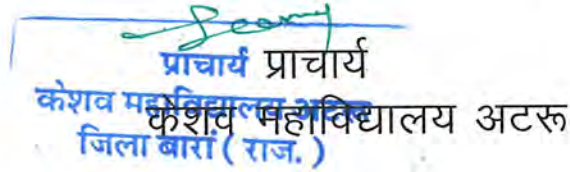 प्राचार्य प्राचार्य
केशव महाविद्यालय अटरू
केशव महाविद्यालय अटरू
जिला बारां ( राज. )